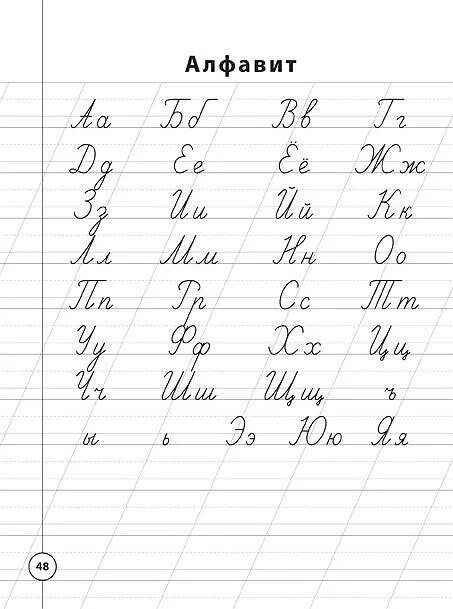 Алфавит
Аа Бб Вв Гг
Дд Ее Ёё Жж
Зз Ии Йй Кк
Лл Мм Нн Оо
Пп Рр Сс Тт
Уу Фф Хх Цц
Чч Шш Щщ ъ
ы ь Ээ Юю Яя
48